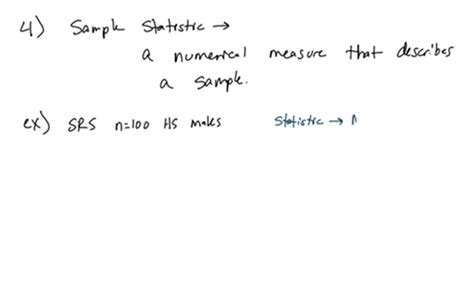 4) Sample Statistic →
a numerical measure that describes
a sample.
ex) SRS n=100 HS males Statistic →